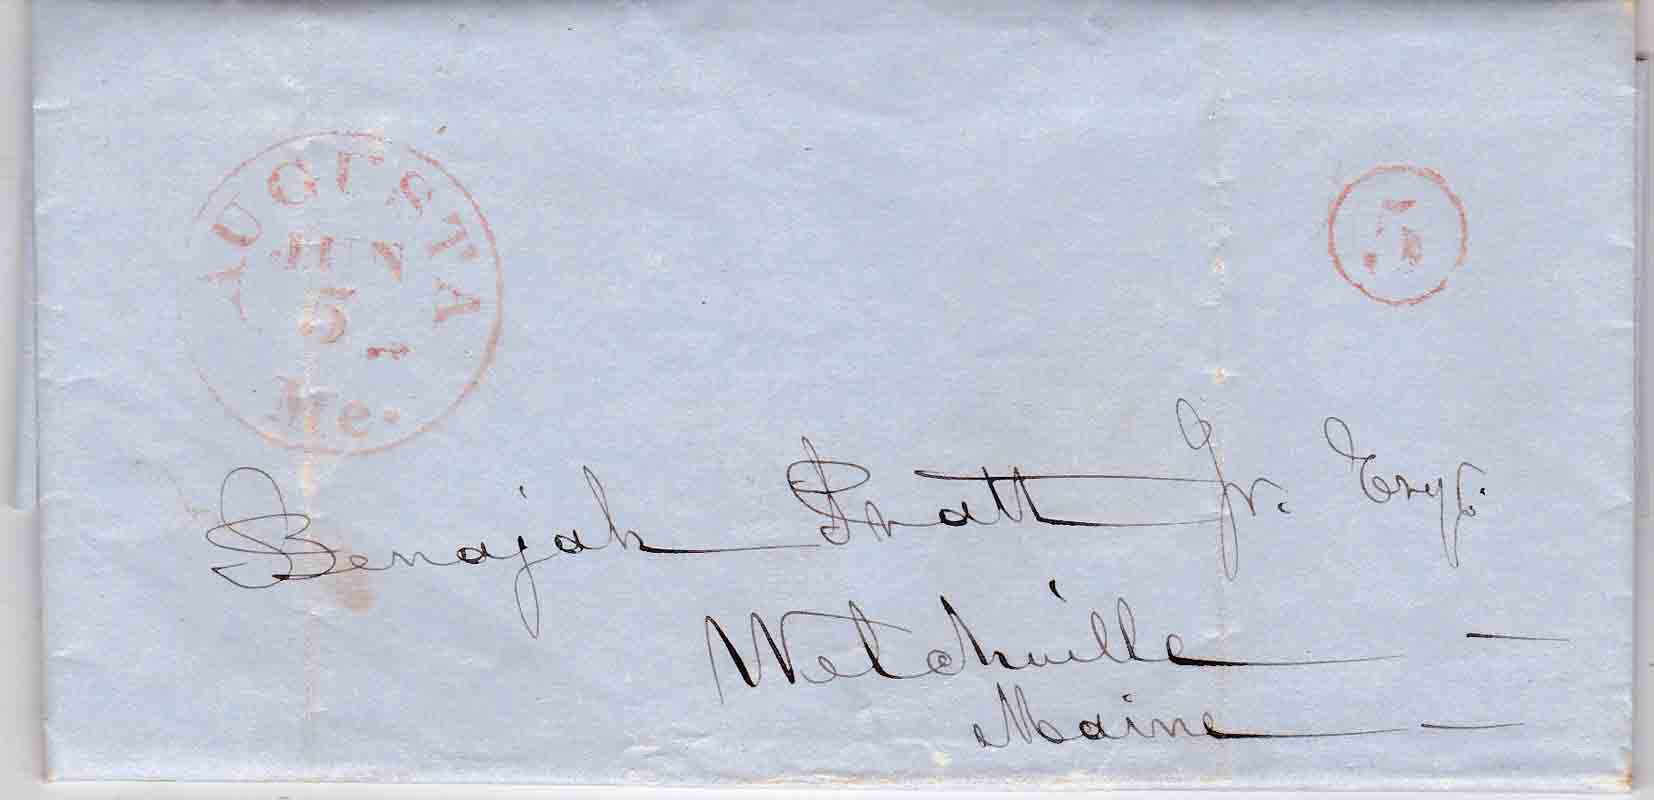 AUGUSTA
JUN
5
Me.
5
Benajah Pratt Jr. Esq.
Welchville
Maine